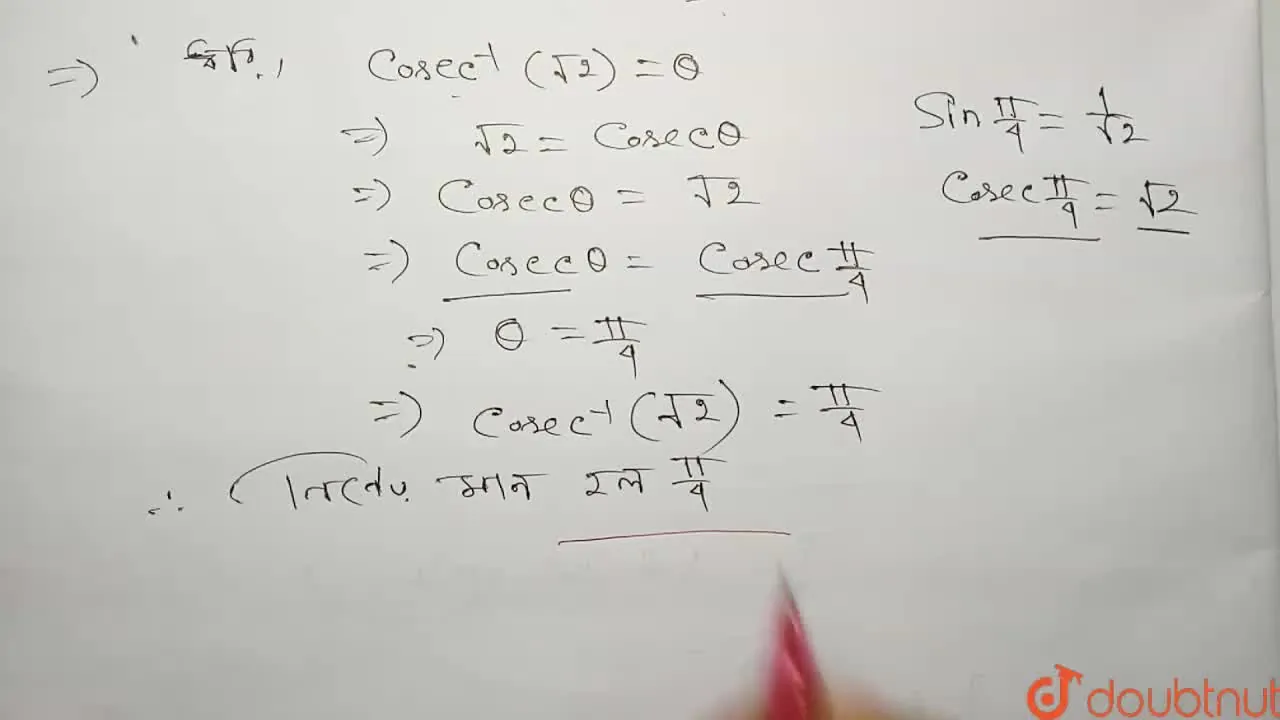 ⇒ ধরি, Cosec⁻¹ (√২) = θ
⇒ √২ = Cosec θ
⇒ Cosec θ = √২
⇒ Cosec θ = Cosec π/4
⇒ θ = π/4
⇒ Cosec⁻¹ (√২) = π/4
∴ নির্ণেয় মান হল π/4
Sin π/4 = 1/√২
Cosec π/4 = √২
doubtnut